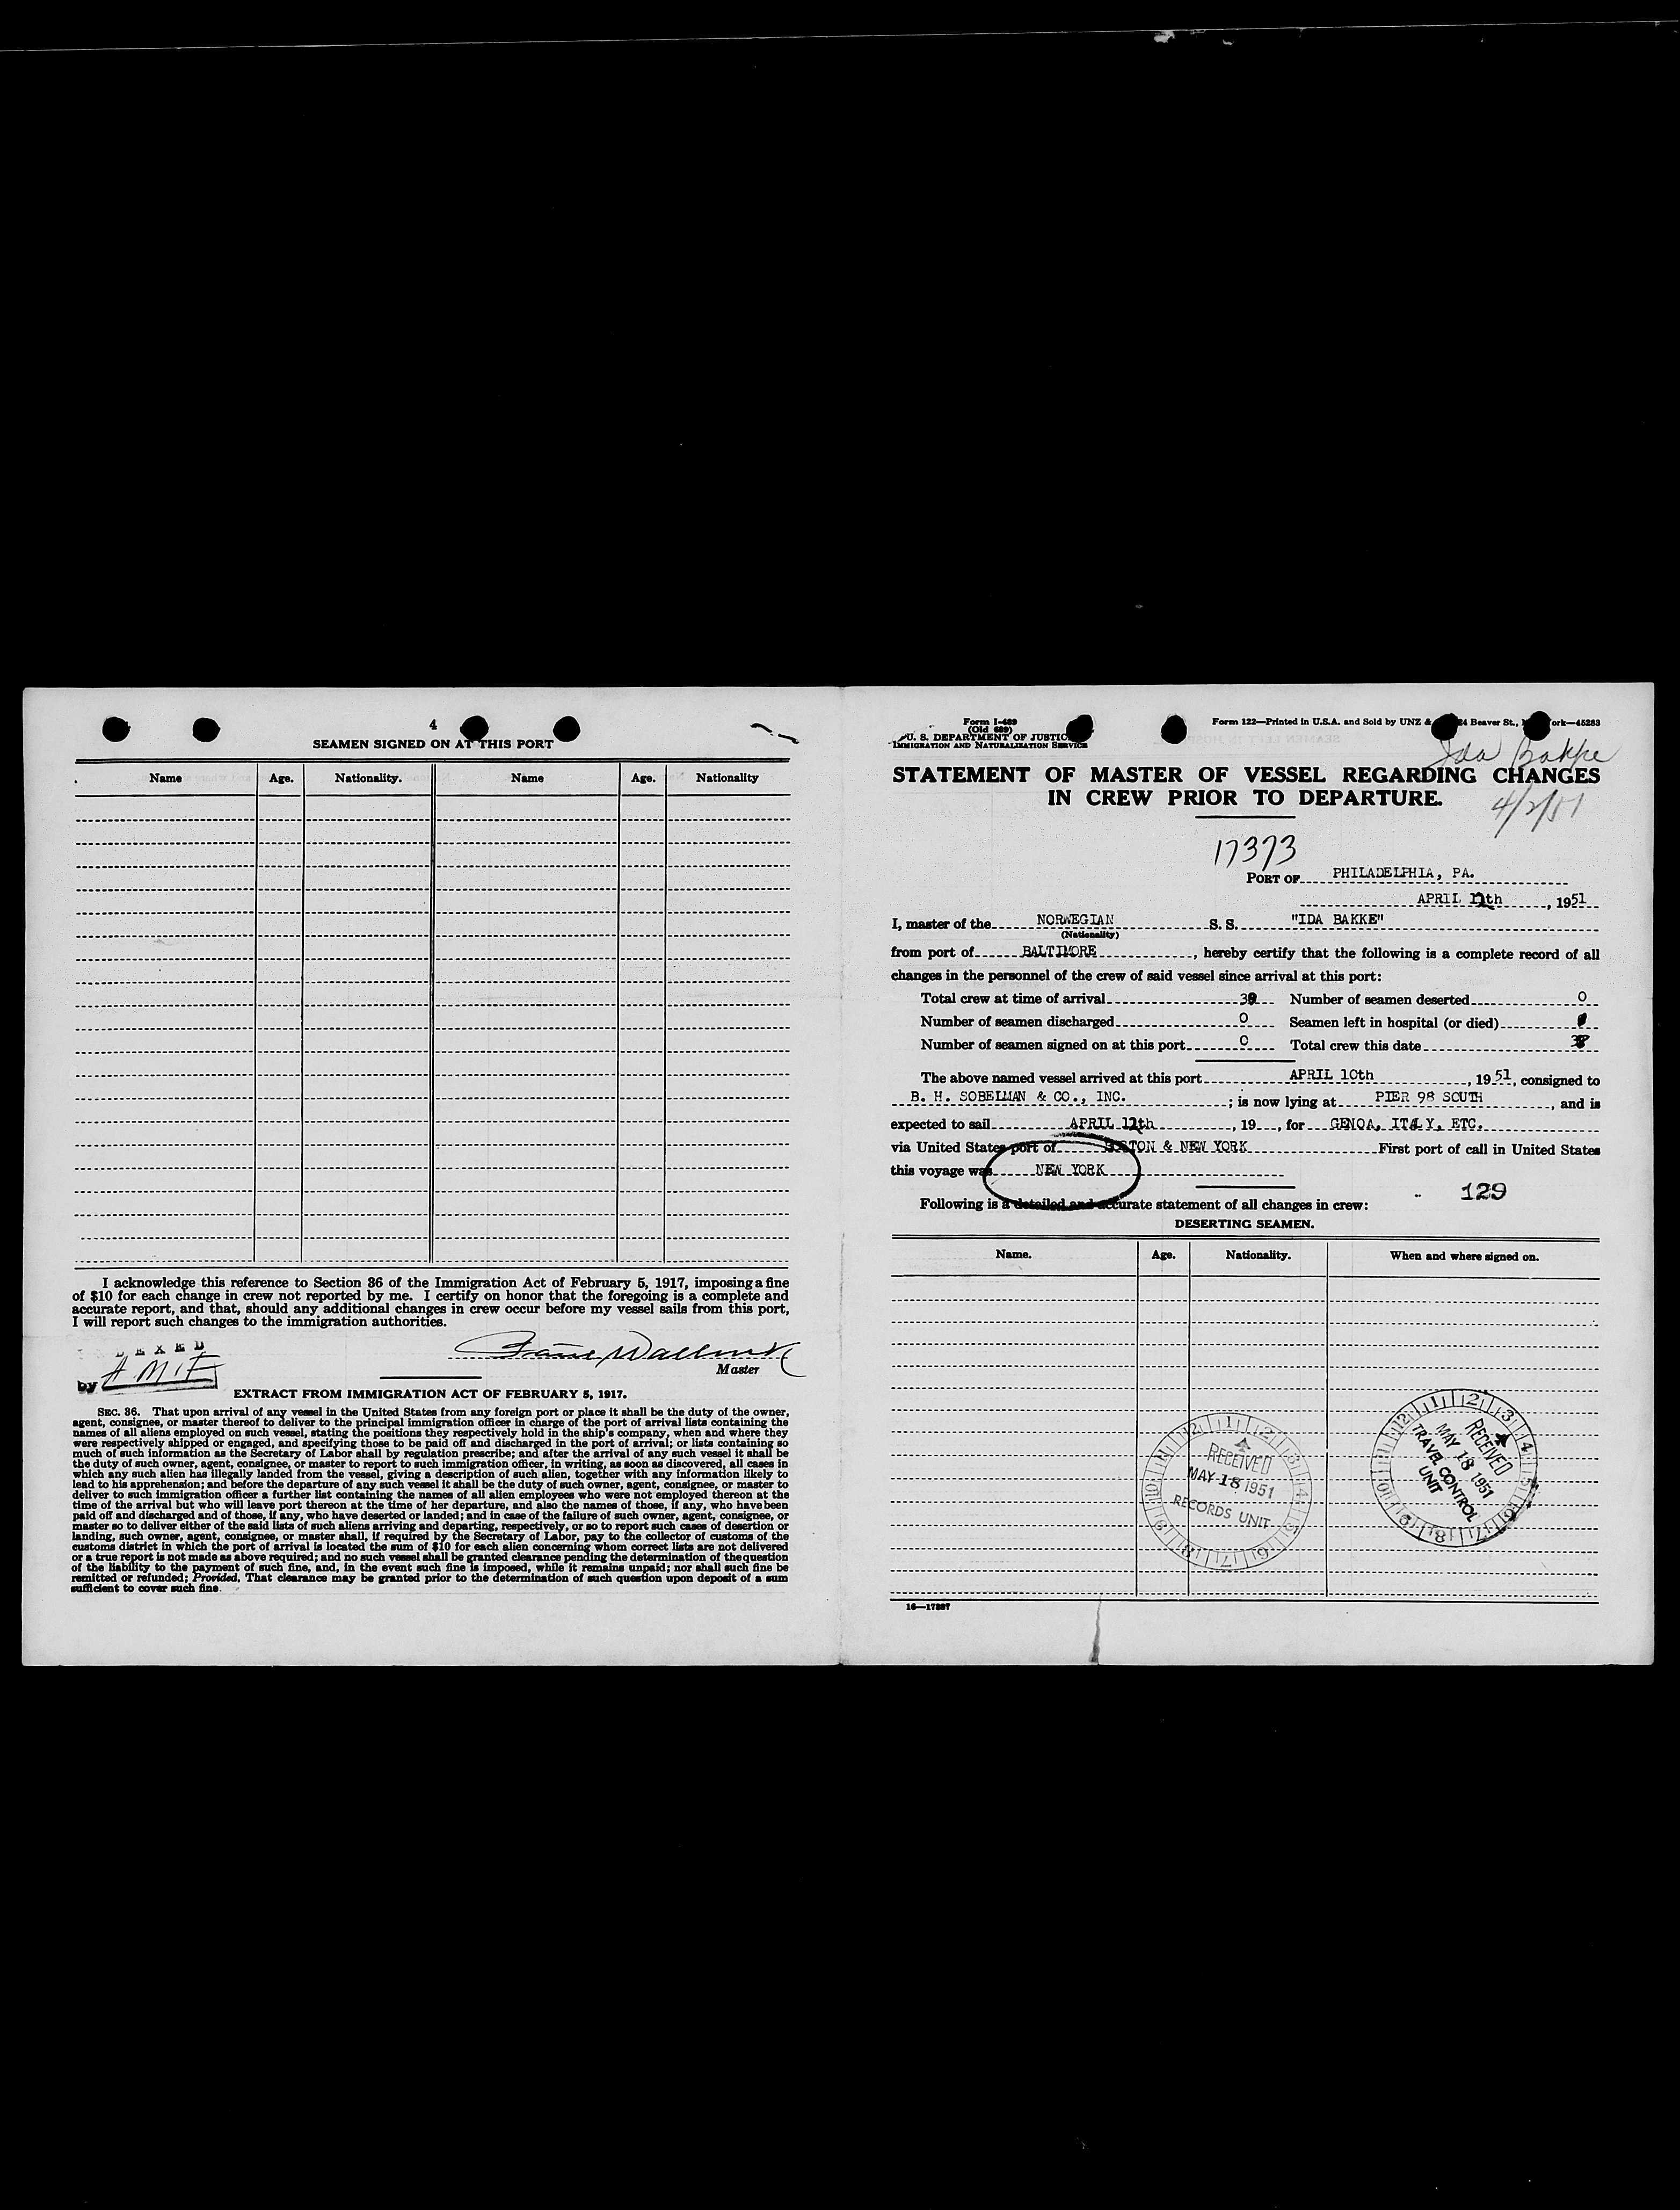 4
SEAMEN SIGNED ON AT THIS PORT
Name Age. Nationality. Name Age. Nationality
I acknowledge this reference to Section 36 of the Immigration Act of February 5, 1917, imposing a fine
of $10 for each change in crew not reported by me. I certify on honor that the foregoing is a complete and
accurate report, and that, should any additional changes in crew occur before my vessel sails from this port,
I will report such changes to the immigration authorities.
Master
by
EXTRACT FROM IMMIGRATION ACT OF FEBRUARY 5, 1917.
SEC. 36. That upon arrival of any vessel in the United States from any foreign port or place it shall be the duty of the owner,
agent, consignee, or master thereof to deliver to the principal immigration officer in charge of the port of arrival lists containing the
names of all aliens employed on such vessel, stating the positions they respectively hold in the ship's company, when and where they
were respectively shipped or engaged, and specifying those to be paid off and discharged in the port of arrival; or lists containing so
much of such information as the Secretary of Labor shall by regulation prescribe; and after the arrival of any such vessel it shall be
the duty of such owner, agent, consignee, or master to report to such immigration officer, in writing, as soon as discovered, all cases in
which any such alien has illegally landed from the vessel, giving a description of such alien, together with any information likely to
lead to his apprehension; and before the departure of any such vessel it shall be the duty of such owner, agent, consignee, or master to
deliver to such immigration officer a further list containing the names of all alien employees who were not employed thereon at the
time of the arrival but who will leave port thereon at the time of her departure, and also the names of those, if any, who have been
paid off and discharged and of those, if any, who have deserted or landed; and in case of the failure of such owner, agent, consignee, or
master so to deliver either of the said lists of such aliens arriving and departing, respectively, or so to report such cases of desertion or
landing, such owner, agent, consignee, or master shall, if required by the Secretary of Labor, pay to the collector of customs of the
customs district in which the port of arrival is located the sum of $10 for each alien concerning whom correct lists are not delivered
or a true report is not made as above required; and no such vessel shall be granted clearance pending the determination of the question
of the liability to the payment of such fine, and, in the event such fine is imposed, while it remains unpaid; nor shall such fine be
remitted or refunded; Provided, That clearance may be granted prior to the determination of such question upon deposit of a sum
sufficient to cover such fine.
Form I-489
(Old 689)
U. S. DEPARTMENT OF JUSTICE
IMMIGRATION AND NATURALIZATION SERVICE
Form 122—Printed in U.S.A. and Sold by UNZ & 24 Beaver St., ork—45283
Ida Bakke
STATEMENT OF MASTER OF VESSEL REGARDING CHANGES
IN CREW PRIOR TO DEPARTURE.
4/2/51
17373
PORT OF PHILADELPHIA, PA.
APRIL th, 1951
I, master of the NORWEGIAN S. S. "IDA BAKKE"
(Nationality)
from port of BALTIMORE, hereby certify that the following is a complete record of all
changes in the personnel of the crew of said vessel since arrival at this port:
Total crew at time of arrival Number of seamen deserted 0
Number of seamen discharged 0 Seamen left in hospital (or died)
Number of seamen signed on at this port 0 Total crew this date
The above named vessel arrived at this port APRIL 10th, 1951, consigned to
B. H. SOBELMAN & CO., INC.; is now lying at PIER 98 SOUTH, and is
expected to sail APRIL th, 19 , for GENOA, ITALY, ETC.
via United States port of BOSTON & NEW YORK First port of call in United States
this voyage was NEW YORK
129
Following is a detailed and accurate statement of all changes in crew:
DESERTING SEAMEN.
Name. Age. Nationality. When and where signed on.
RECEIVED
MAY 18 1951
RECORDS UNIT
RECEIVED
MAY 18 1951
TRAVEL CONTROL
UNIT
16—17397